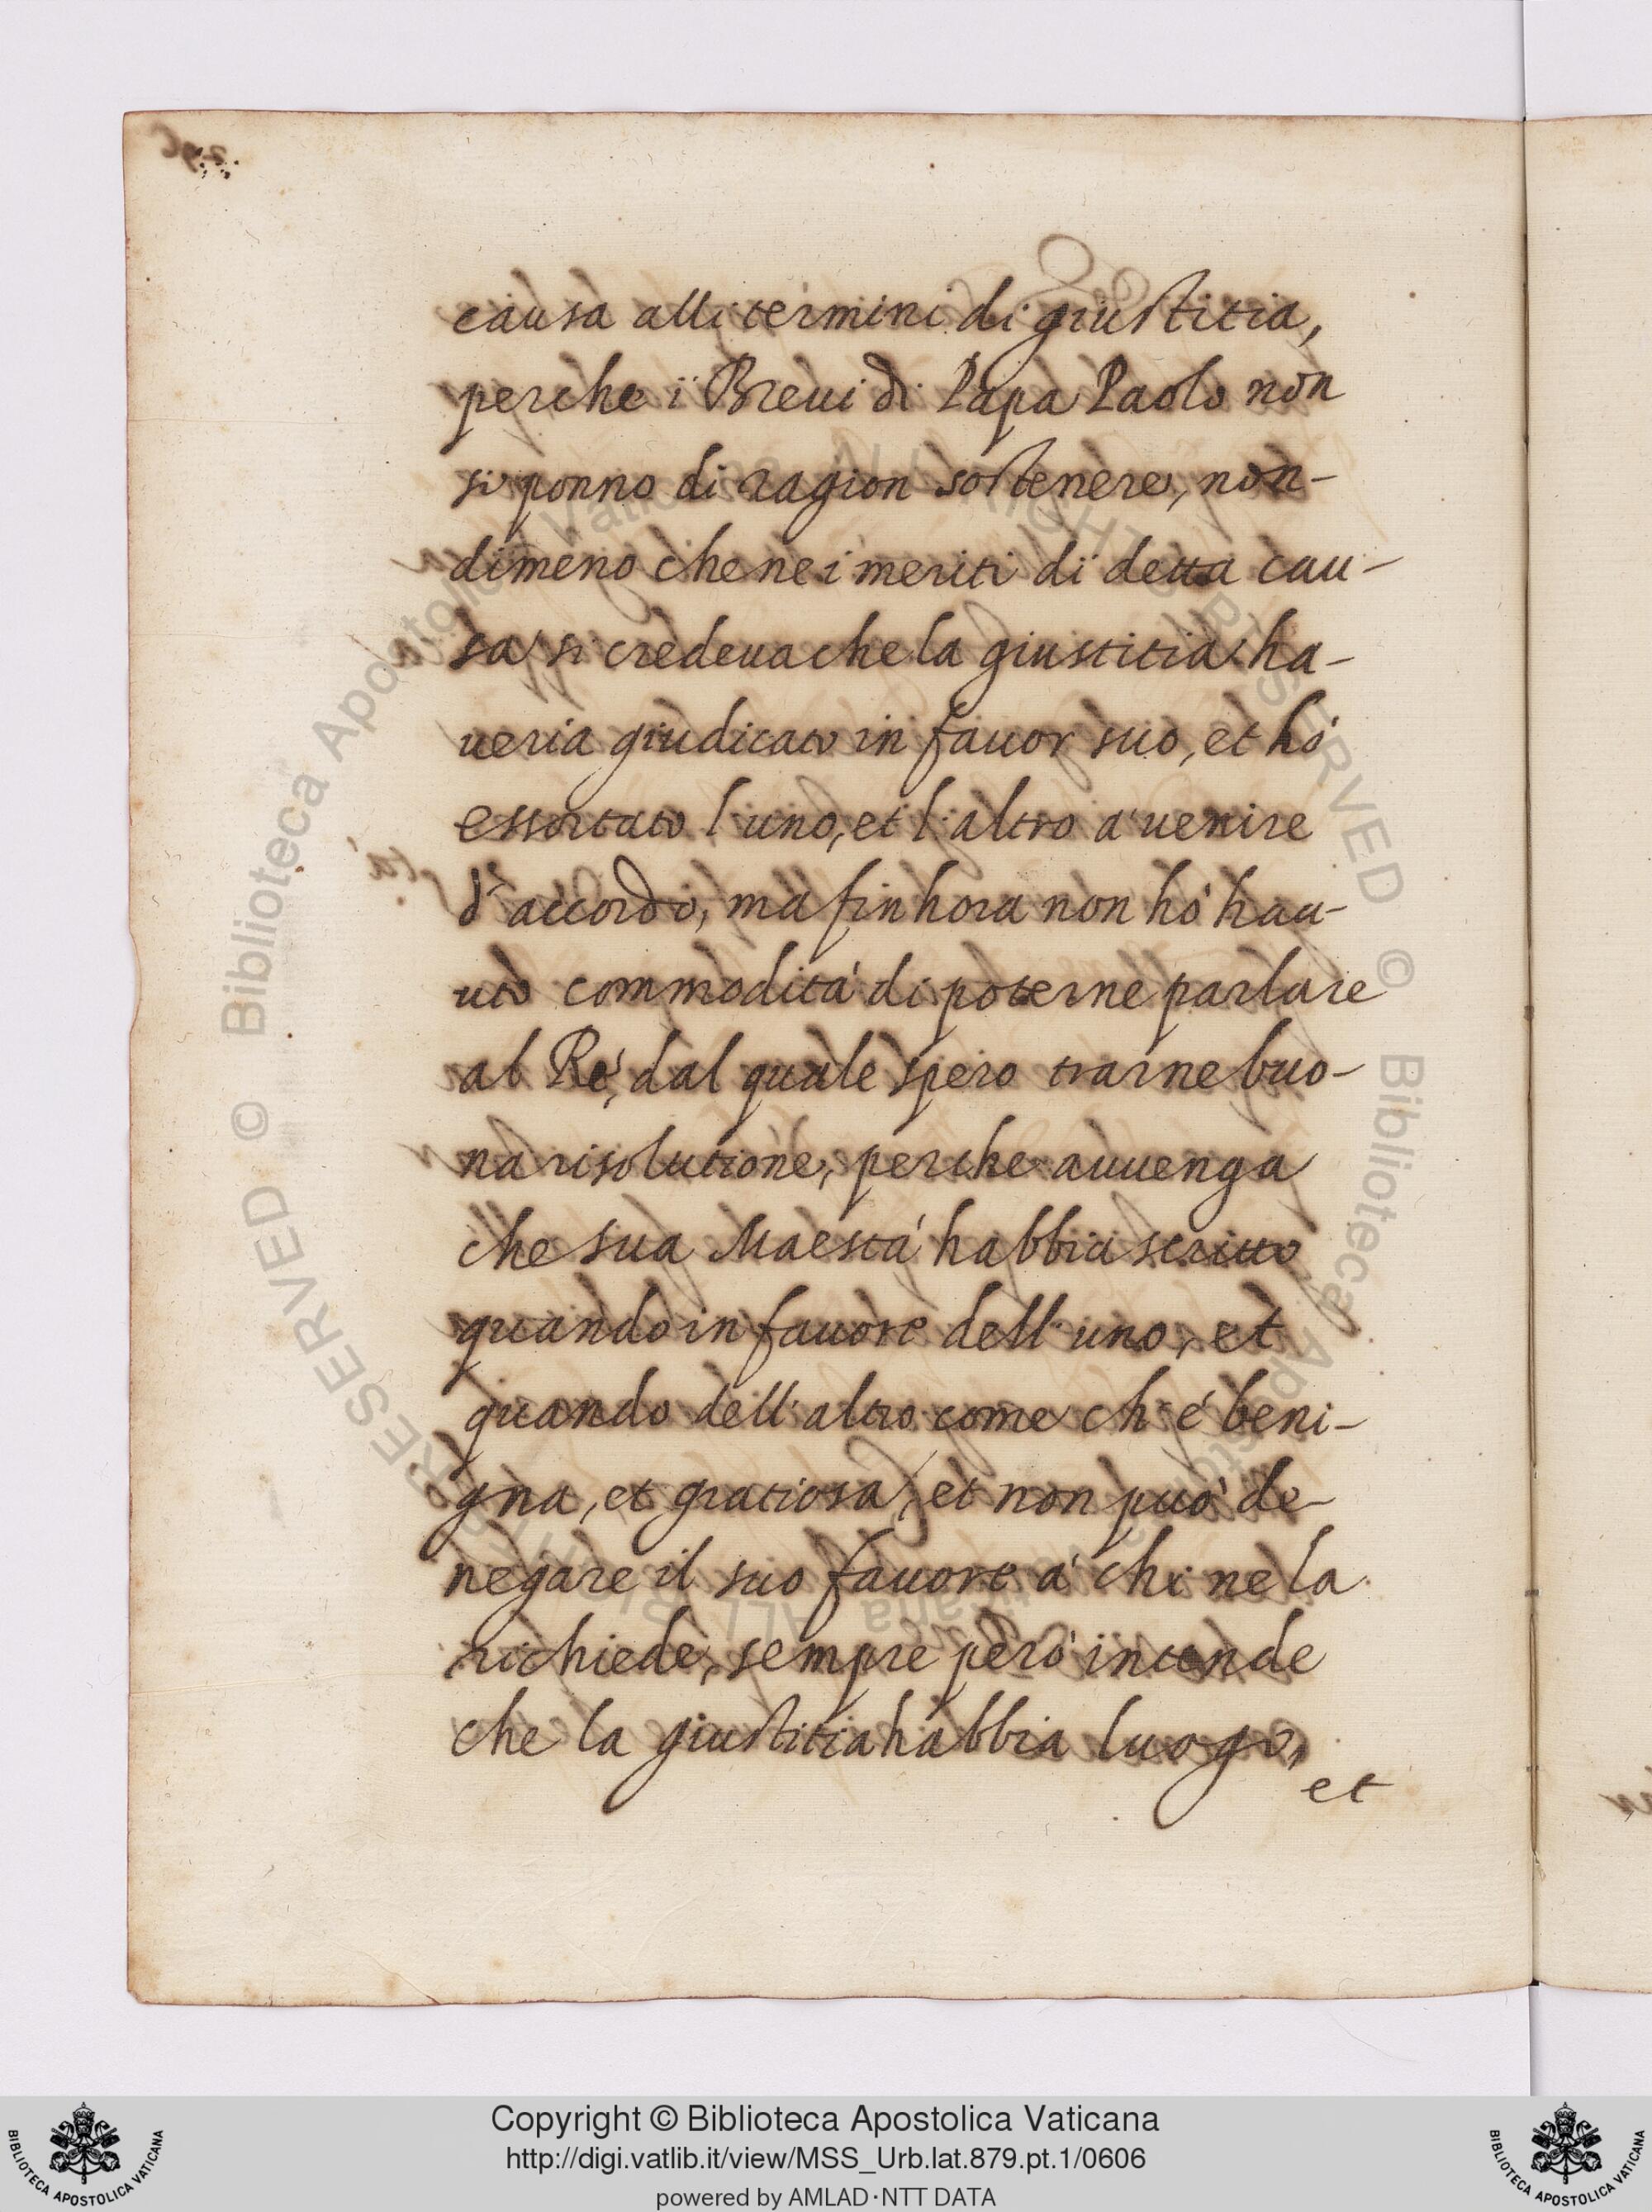 causa alli termini di giustitia,
perche i Breui di Papa Paolo non
si ponno di ragion sostenere, non-
dimeno che nei meriti di detta cau-
sa si credeua che la giustitia ha-
ueria giudicato in fauor suo, et hò
essortato l'uno, et l'altro à uenire
d'accordo, mà fin hora non hò hau-
uto commodità di poterne parlare
al Rè, dal quale spero trarne buo-
na risolutione, perche auuenga
che sua Maestà habbia scritto
quando in fauore dell'uno, et
quando dell'altro come ch'è beni-
gna, et gratiosa, et non può de-
negare il suo fauore à chi ne la
richiede, sempre però intende
che la giustitia habbia luogo,
et
Biblioteca Apostolica Vaticana ALL RIGHTS RESERVED ©
Biblioteca Apostolica Vaticana ALL RIGHTS RESERVED ©
Copyright © Biblioteca Apostolica Vaticana
http://digi.vatlib.it/view/MSS_Urb.lat.879.pt.1/0606
powered by AMLAD·NTT DATA
BIBLIOTECA APOSTOLICA VATICANA
BIBLIOTECA APOSTOLICA VATICANA